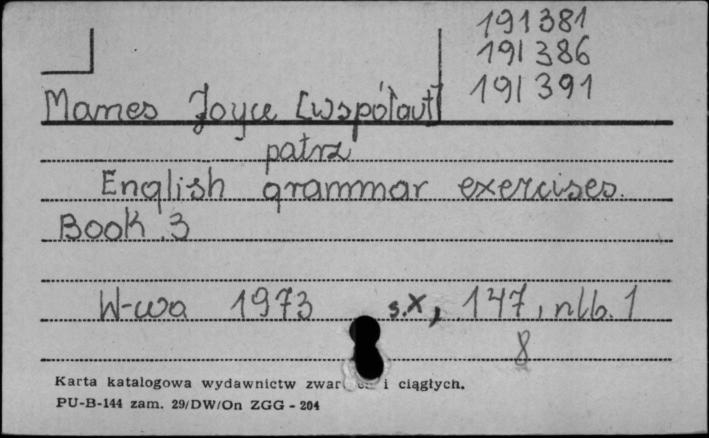 191381
191386
191391
Manes Joyce [współaut]
patrz
English grammar exercises.
Book 3
W-wa 1973 s.X, 147, nlb. 1
8
Karta katalogowa wydawnictw i ciągłych.
PU-B-144 zam. 29/DW/On ZGG - 204